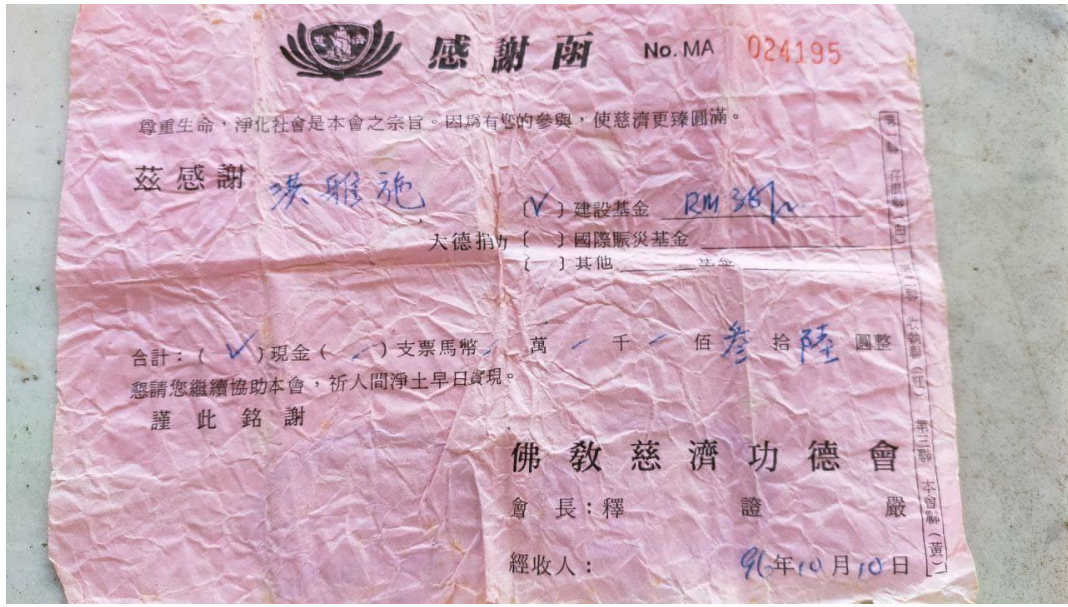 感謝函 No. MA 024195
尊重生命，淨化社會是本會之宗旨。因為有您的參與，使慈濟更臻圓滿。
茲感謝 洪雅施
〔✓〕建設基金 RM 36/-
大德捐助〔 〕國際賑災基金
〔 〕其他 基金
合計：(✓)現金( - )支票馬幣 - 萬 - 千 - 佰 叁 拾 陸 圓整
懇請您繼續協助本會，祈人間淨土早日實現。
謹此銘謝
佛教慈濟功德會
會長：釋證嚴
經收人：
96年10月10日
第三聯 本會聯（黃）